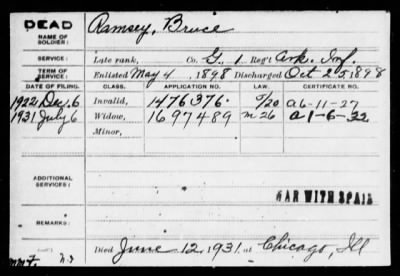 DEAD
NAME OF SOLDIER: Ramsey, Bruce
SERVICE: Late rank, Co. G, 1 Reg't Ark. Inf.
TERM OF SERVICE: Enlisted May 4 1898 Discharged Oct 25 1898
DATE OF FILING. CLASS. APPLICATION NO. LAW. CERTIFICATE NO.
1922 Dec. 6 Invalid, 1476376. 5/20 a 6-11-27
1931 July 6 Widow, 1697489 m 26 a 1-6-32
Minor,
ADDITIONAL SERVICES:
WAR WITH SPAIN
REMARKS:
Died June 12, 1931. at Chicago, Ill